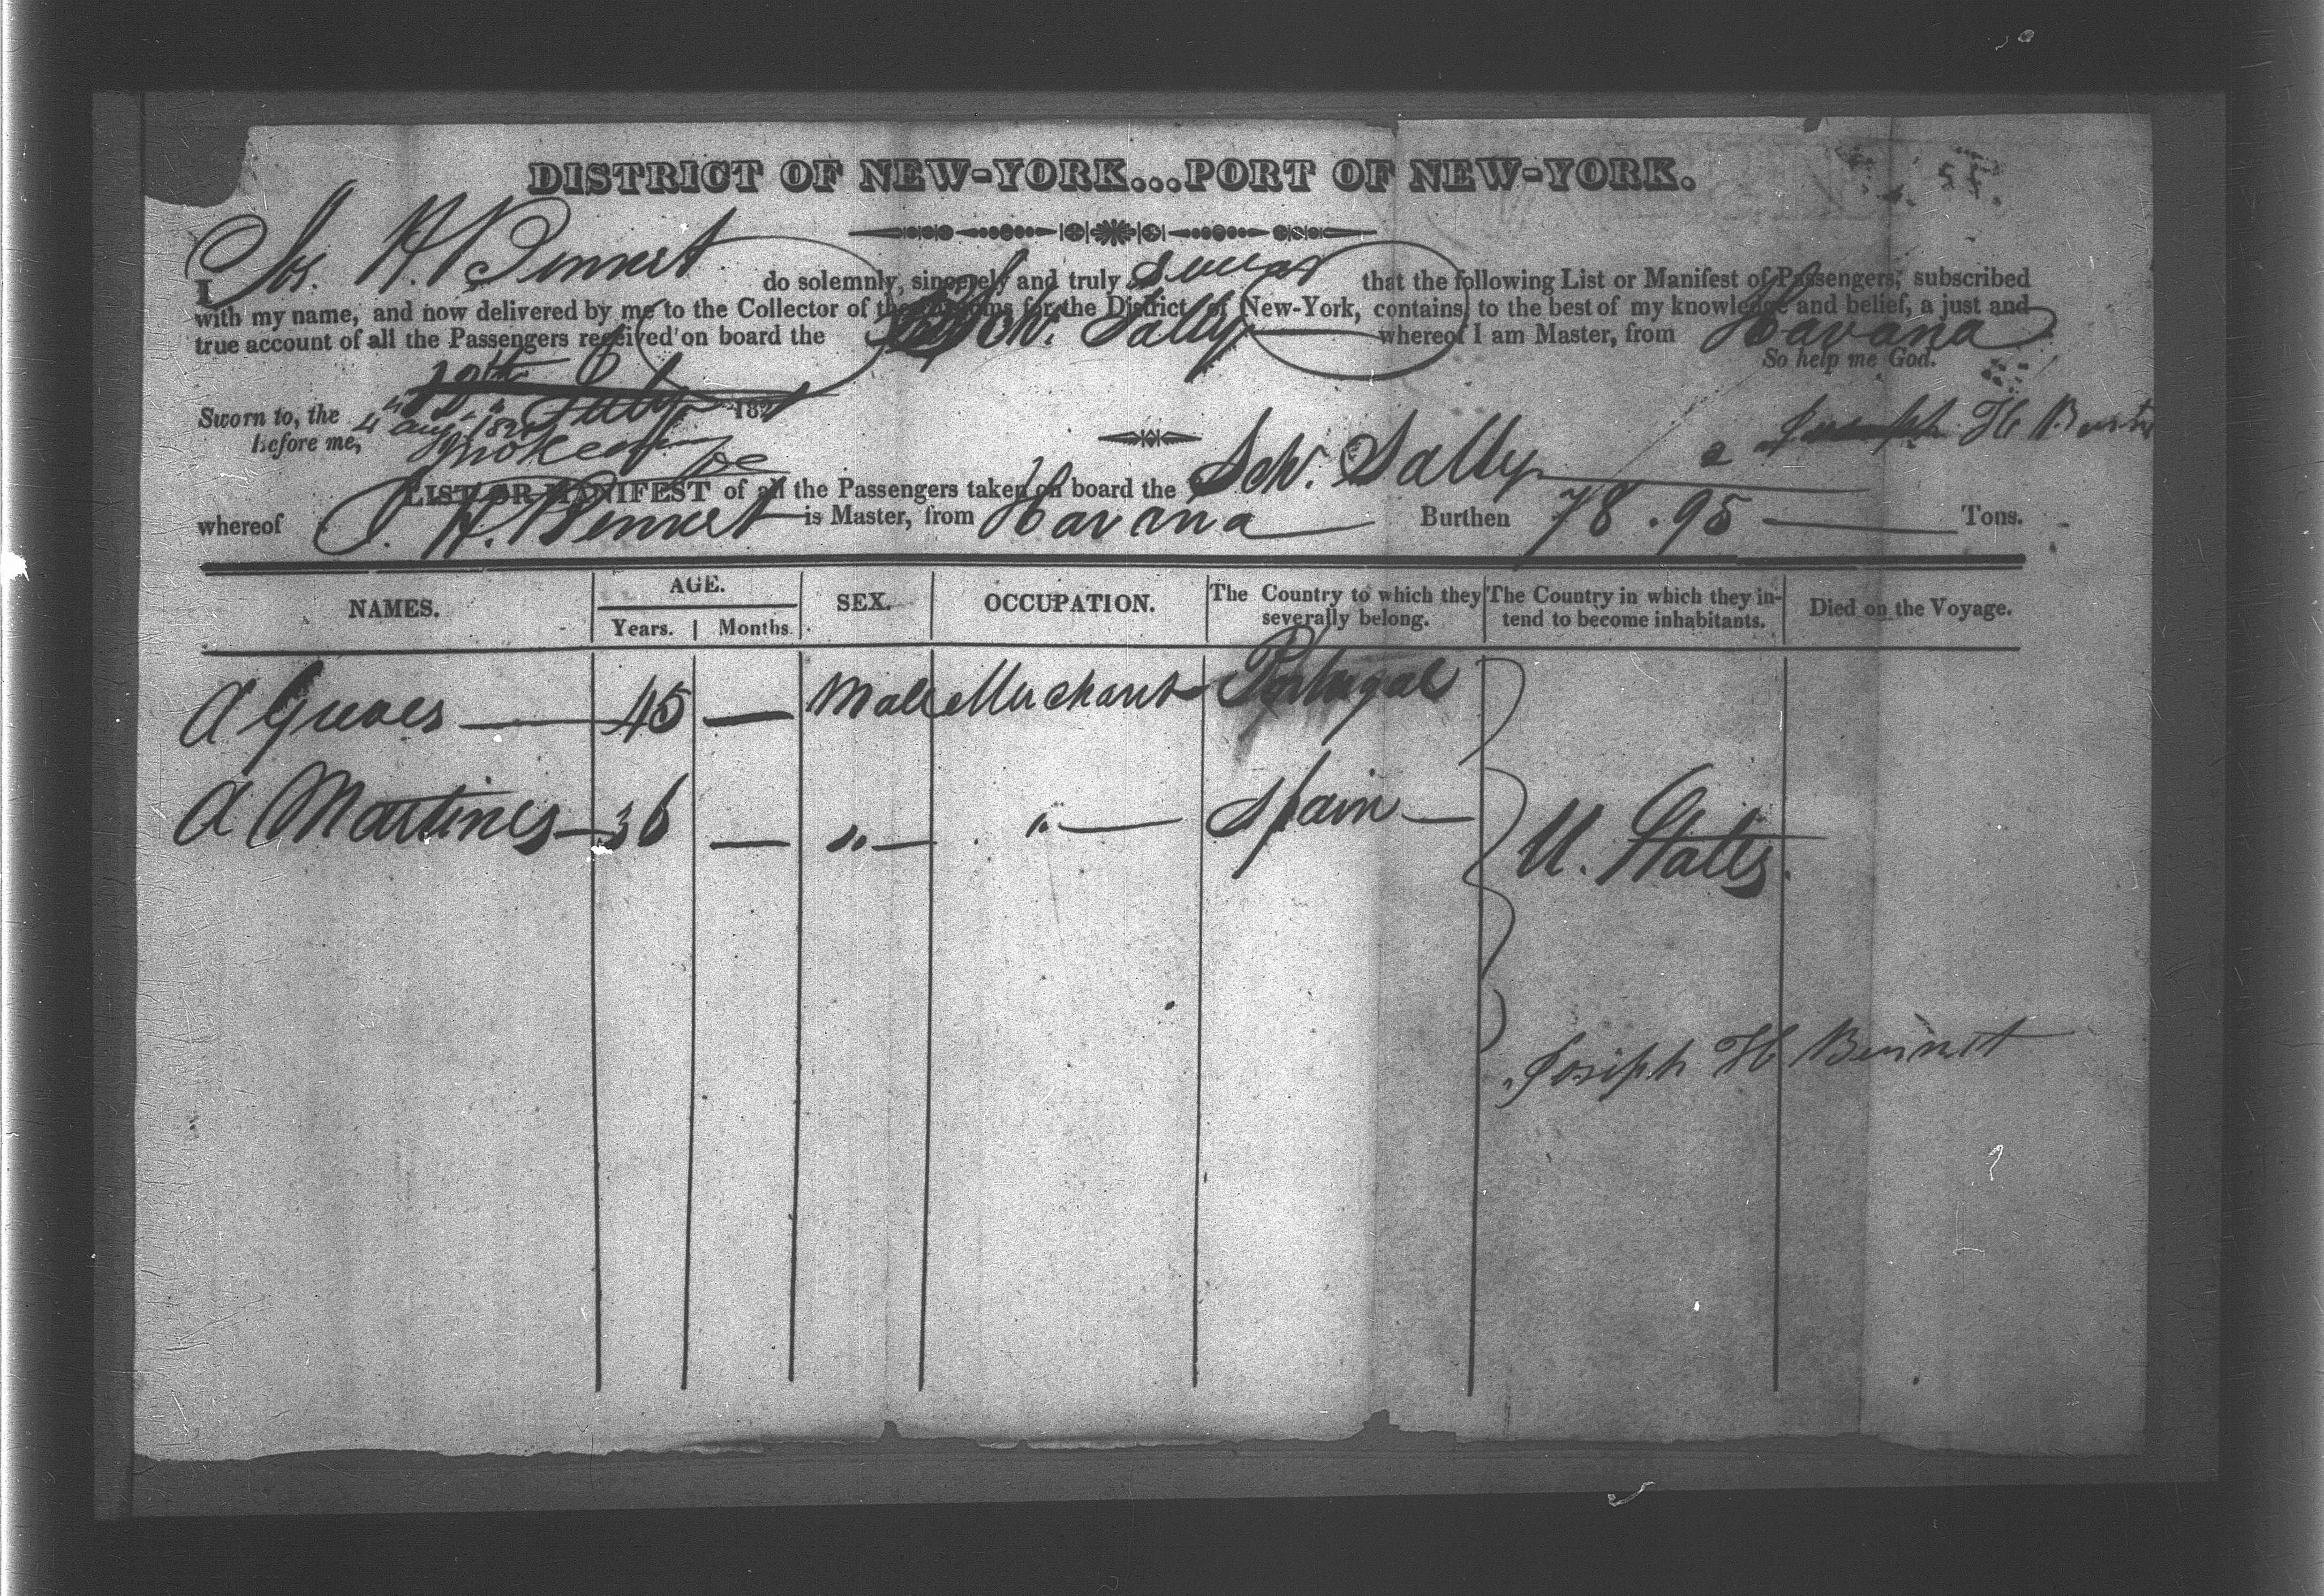 DISTRICT OF NEW-YORK...PORT OF NEW-YORK.
I Jos. H. Bennet do solemnly, sincerely and truly Swear that the following List or Manifest of Passengers, subscribed
with my name, and now delivered by me to the Collector of the Customs for the District of New-York, contains, to the best of my knowledge and belief, a just and
true account of all the Passengers received on board the Sch. Sally whereof I am Master, from Havana
So help me God.
Sworn to, the July 182
4 Aug 182
before me,
Joseph H Bennet
LIST OR MANIFEST of all the Passengers taken on board the Sch. Sally
whereof J. H. Bennet is Master, from Havana Burthen 78.95 Tons.
NAMES. AGE. Years. Months. SEX. OCCUPATION. The Country to which they severally belong. The Country in which they intend to become inhabitants. Died on the Voyage.
A 45 — Male Merchant Portugal
A Martines 36 — " " Spain
U. States.
Joseph H Bennet